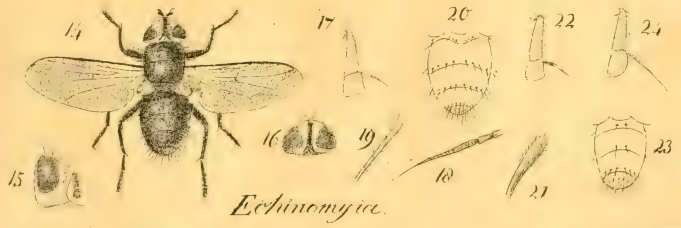 14 17 20 22 24
16 19 18 21 23
15
Echinomyia.